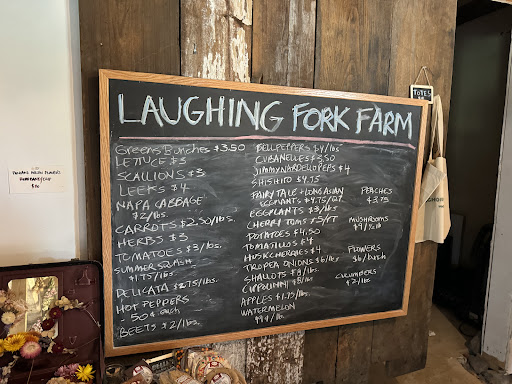 LAUGHING FORK FARM
Greens Bunches $3.50
LETTUCE $3
SCALLIONS $3
LEEKS $4
NAPA CABBAGE
$2/lbs.
CARROTS $2.50/lbs.
HERBS $3
TOMATOES $3/lbs.
SUMMER SQUASH
$1.75/lbs.
DELICATA $2.75/lbs.
HOT PEPPERS
50¢ each
BEETS $2/lbs.
BELLPEPPERS $4/lbs
CUBANELLES $3.50
JIMMY NARDELLO PEPS $4
SHISHITO $4.75
FAIRY TALE + LONG ASIAN
EGGPLANTS $4.75/QT
EGGPLANTS $3/lbs
CHERRY TOMS $5/PT
POTATOES $4.50
TOMATILLOS $4
HUSKCHERRIES $4
TROPEA ONIONS $6/lbs
SHALLOTS $8/lbs.
CIPPOLINNI $8/lbs
APPLES $1.75/lbs.
WATERMELON
99¢/lb.
PEACHES
$3.75
MUSHROOMS
$9/½lb
FLOWERS
$6/bunch
CUCUMBERS
$2/lbs
TOTES